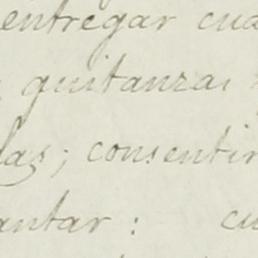 entregar cua
quitanzas
las; consentir
antar: cu